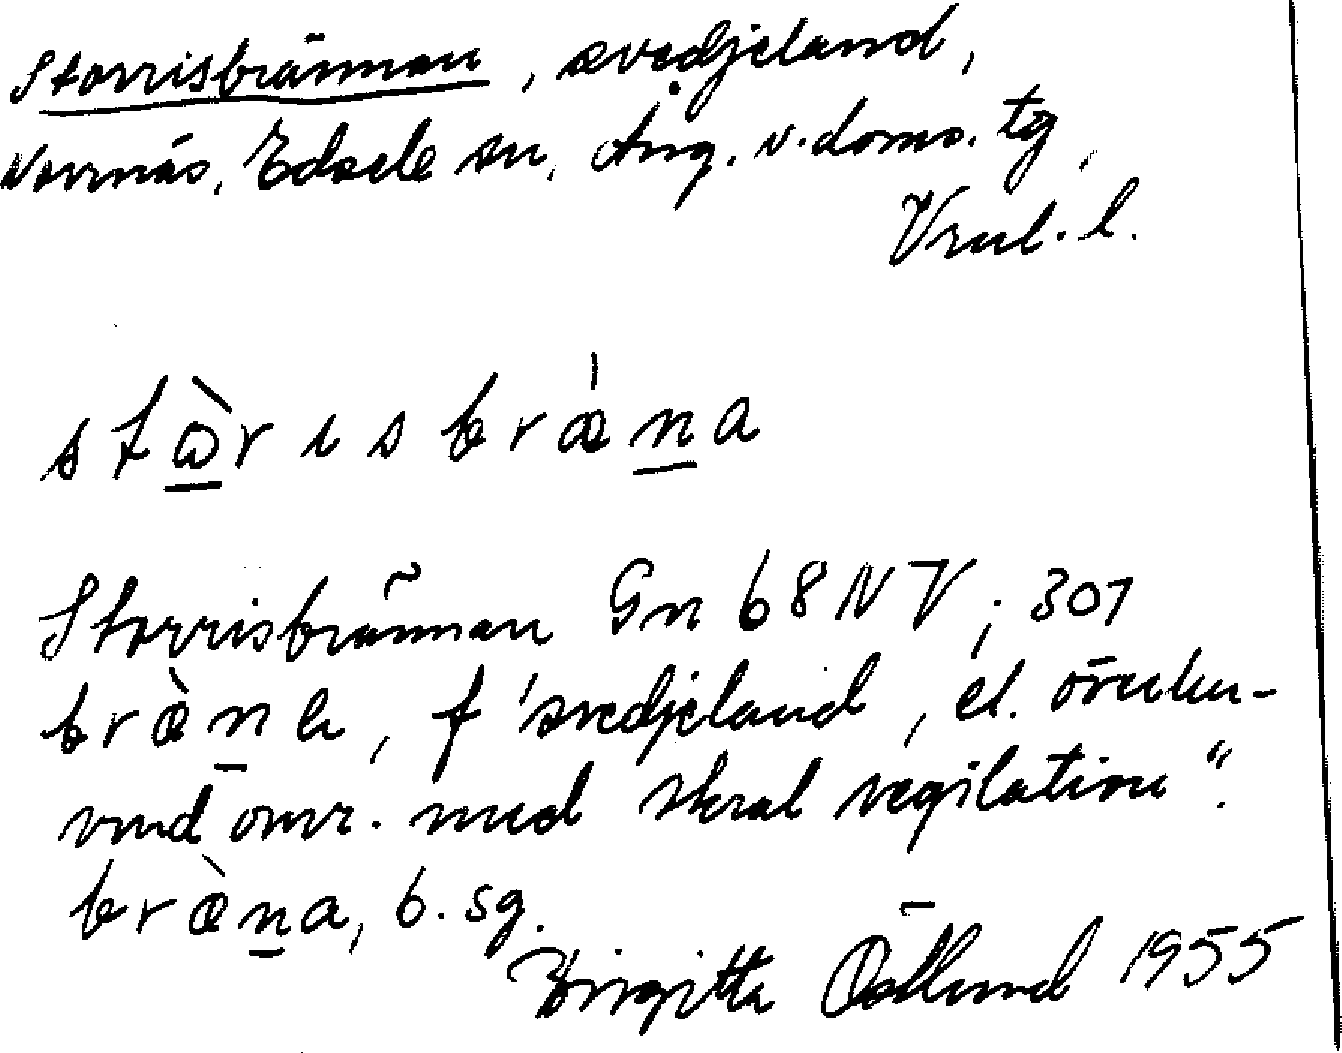 Storrisbrännan, svedjeland,
Norrnäs, Edsele sn, Ång. v. doms. tg,
Vnl. l.
stὼrısbrǽna
Storrisbrännan Gn 68 NV; 307
bræ̀na, f "svedjeland, el.
omr. med skral vegitation".
bræ̀na, b. sg.
Birgitta Östlund 1955